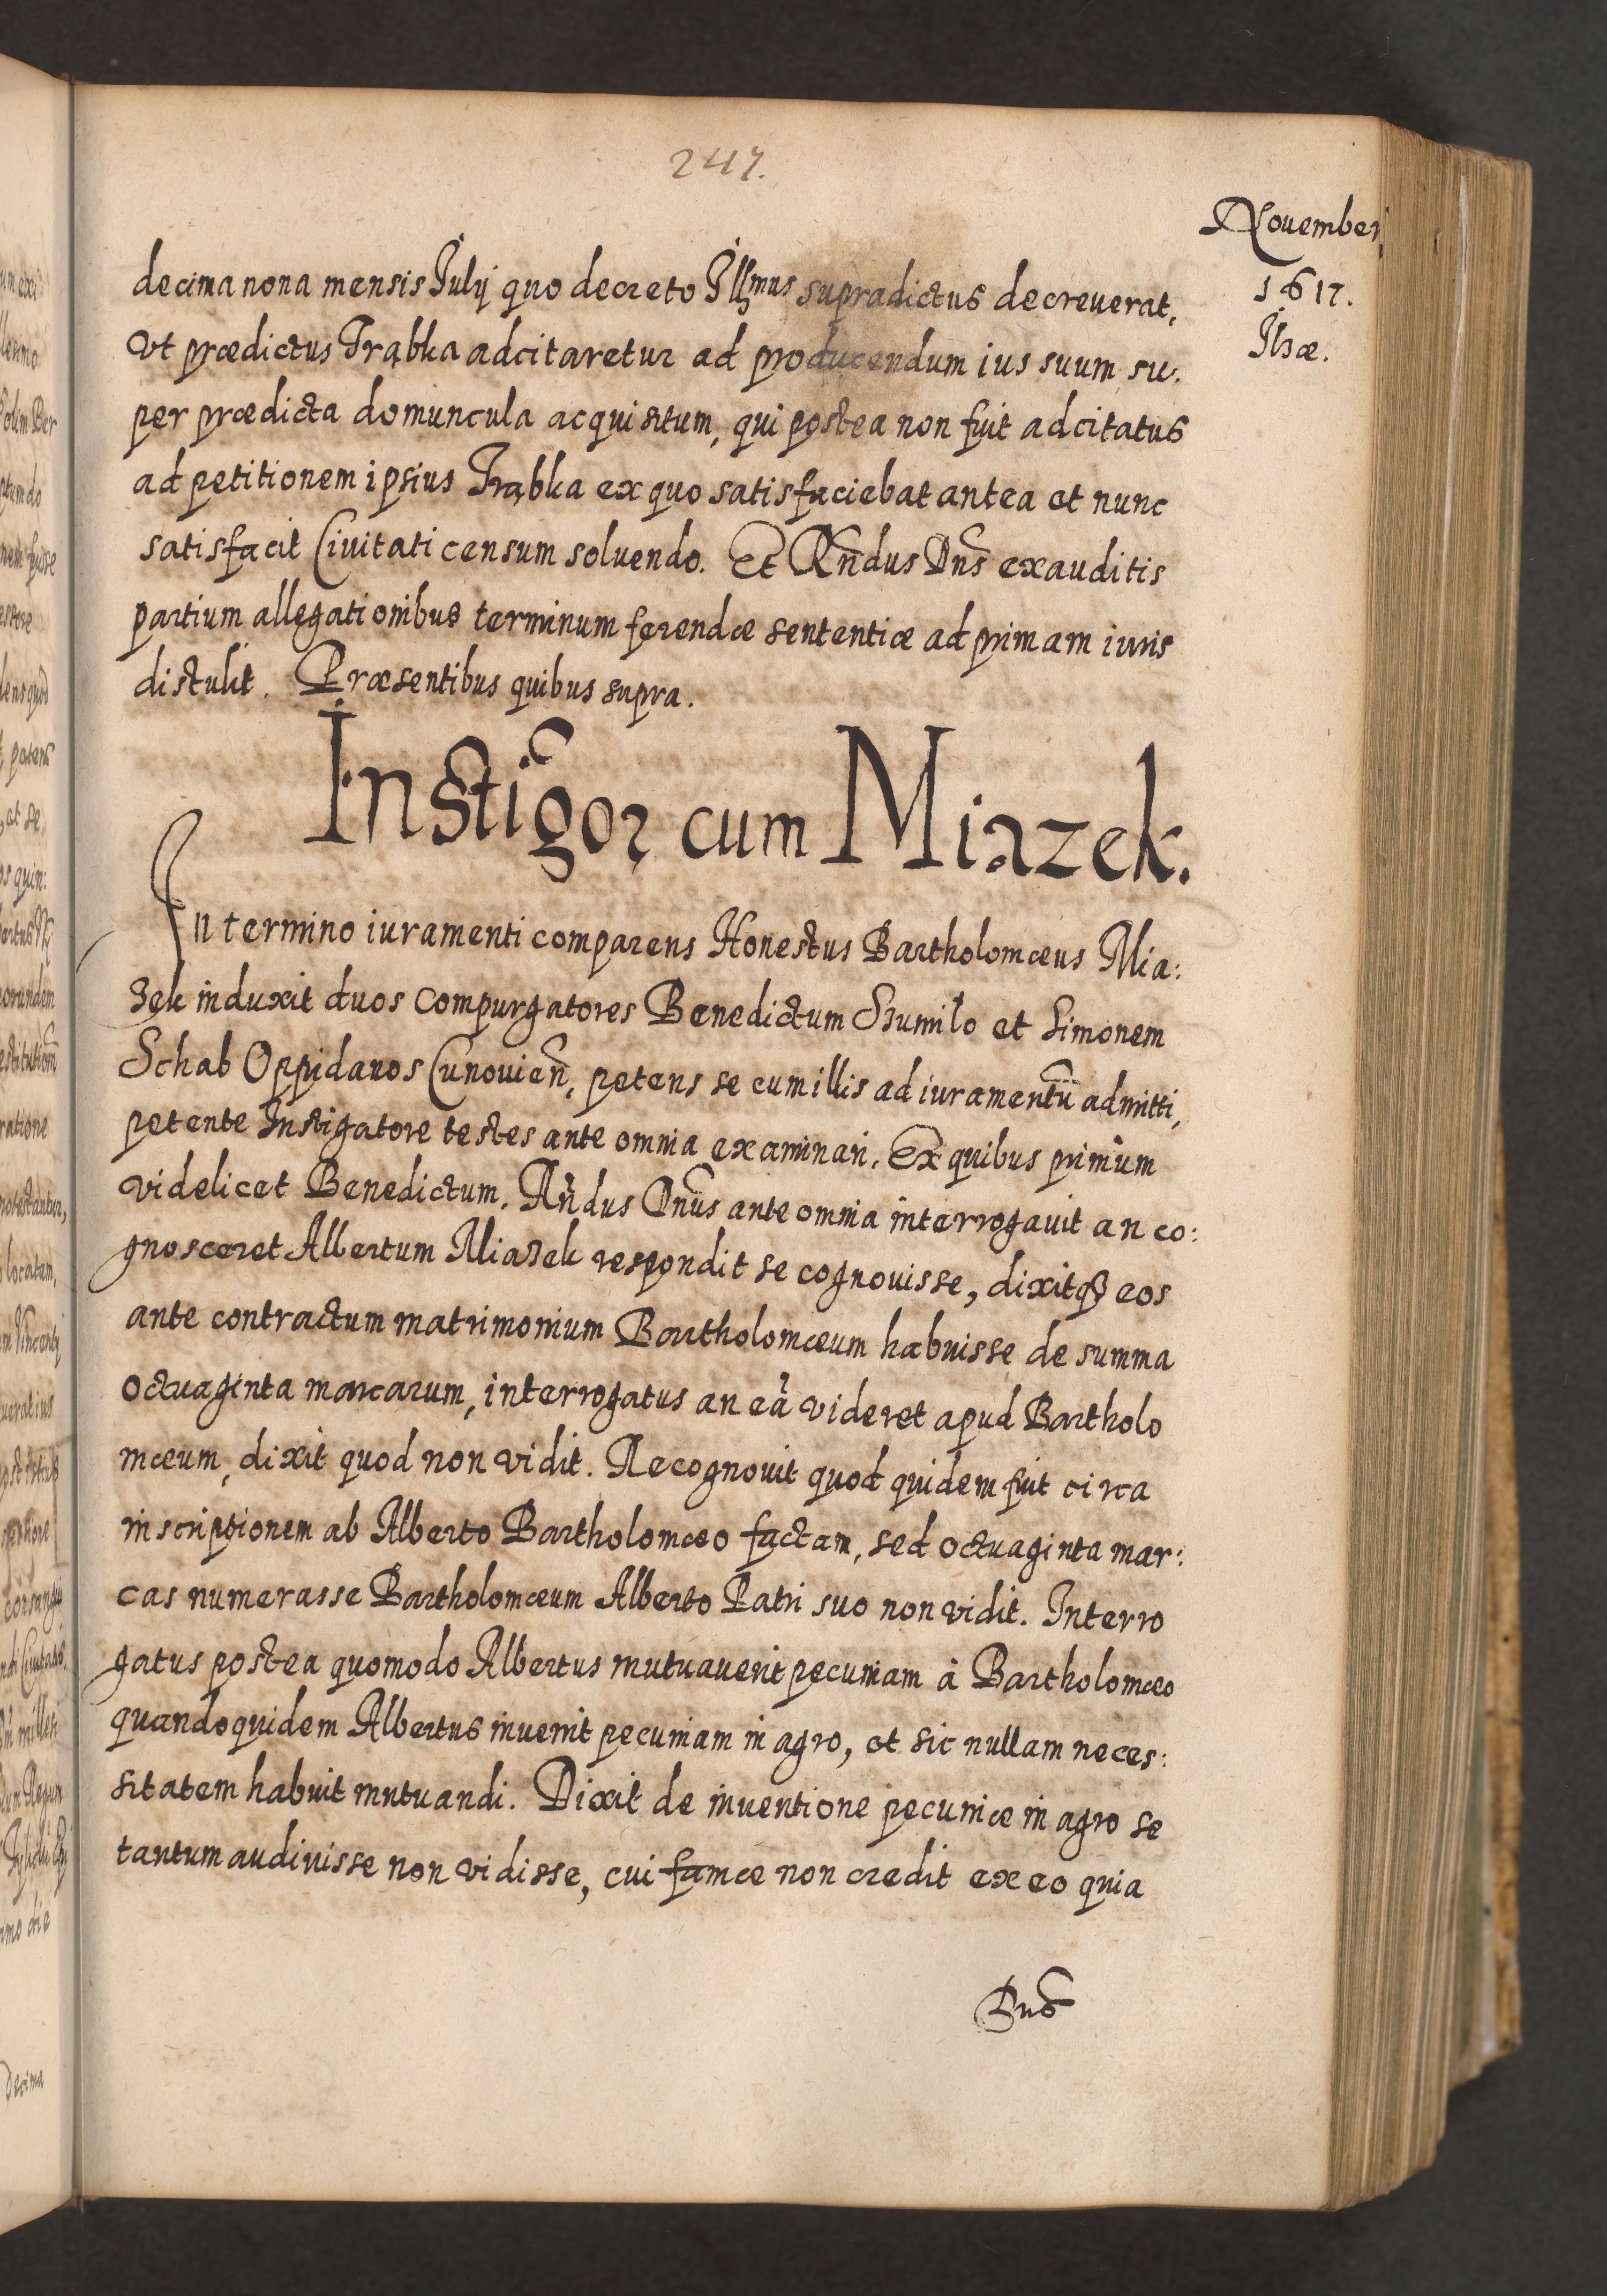 247.
November
1617.
Ilzæ.
decima nona mensis Iulÿ quo decreto Illmus supradictus decreuerat,
vt prædictus Trąbka adcitaretur ad producendum ius suum su:
per prædicta domuncula acquisitum, qui postea non fuit adcitatus
ad petitionem ipsius Trąbka ex quo satisfaciebat antea et nunc
satisfacit Ciuitati censum soluendo. Et Rñdus Dñs exauditis
partium allegationibus terminum ferendæ sententiæ ad primam iuris
distulit. Præsentibus quibus supra.
Instig̃or cum Miazek.
In termino iuramenti comparens Honestus Bartholomæus Mia:
zek induxit duos Compurgatores Benedictum Szumilo et Simonem
Schab Oppidanos Cunouieñ, petens se cum illis ad iuramentũ admitti,
petente Instigatore testes ante omnia examinari. Ex quibus primum
videlicet Benedictum. Rñdus Dñus ante omnia interrogauit an co:
gnosceret Albertum Miazek respondit se cognouisse, dixitq3 eos
ante contractum matrimonium Bartholomæum habuisse de summa
octuaginta marcarum, interrogatus an eã videret apud Bartholo
mæum, dixit quod non vidit. Recognouit quod quidem fuit circa
inscriptionem ab Alberto Bartholomæo factam, sed octuaginta mar:
cas numerasse Bartholomæum Alberto Patri suo non vidit. Interro
gatus postea quomodo Albertus mutuauerit pecuniam à Bartholomæo
quandoquidem Albertus inuenit pecuniam in agro, et sic nullam neces:
sitatem habuit mutuandi. Dixit de inuentione pecuniæ in agro se
tantum audiuisse non vidisse, cui famæ non credit ex eo quia
Dñs